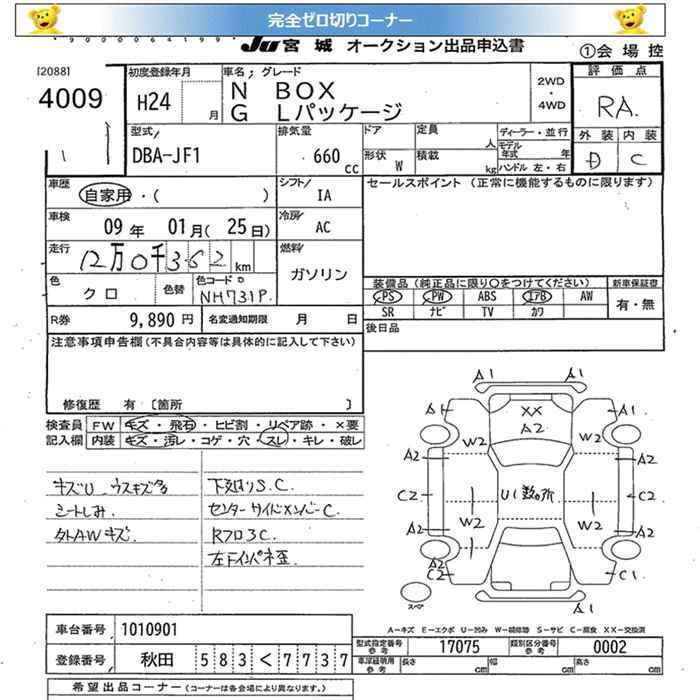 完全ゼロ切りコーナー
JU 宮城 オークション出品申込書
①会場控
[2088]
4009
初度登録年月
H24 月
車名; グレード
N BOX
G Lパッケージ
2WD
・
4WD
評価点
RA
外装 内装
D C
型式;
DBA-JF1
排気量
660 cc
ドア 定員 人
形状 W 積載 kg
ディーラー・並行
モデル年式 年
ハンドル 左・右
車歴 自家用・( )
シフト/ IA
セールスポイント (正常に機能するものに限ります)
車検 09 年 01 月( 25 日)
冷房/ AC
走行 12万0千362 km
燃料/ ガソリン
色 クロ 色替 色コード NH731P
装備品 (純正品に限り○をつけてください) 新車保証書
PS PW ABS エアB AW 有・無
SR ナビ TV カワ
R券 9,890 円 名変通知期限 月 日
後日品
注意事項申告欄(不具合内容等は具体的に記入して下さい)
修復歴 有 [箇所 ]
検査員 FW キズ・飛石・ヒビ割・リペア跡・×要
記入欄 内装 キズ・汚レ・コゲ・穴・スレ・キレ・破レ
キズU ウスキズ多
シートしみ
外AWキズ
下廻りS.C.
センターサイドメンバーC.
Rフロア3C.
左下インパネ歪
A1 A1
A1 XX A1
A2
W2 W2
A2 A2
C2 U1数ヶ所 C2
W2 W2
A2 A2
A2 A2
C2 C1
スペア
A1
A―キズ E―エクボ U―凹み W―補修跡 S―サビ C―腐食 XX―交換済
車台番号 1010901
登録番号 秋田 583 く 7737
型式指定番号 参考 17075 類別区分番号 参考 0002
車庫証明用 参考 長さ cm 幅 cm 高さ cm
希望出品コーナー (コーナーは各会場により異なります。)